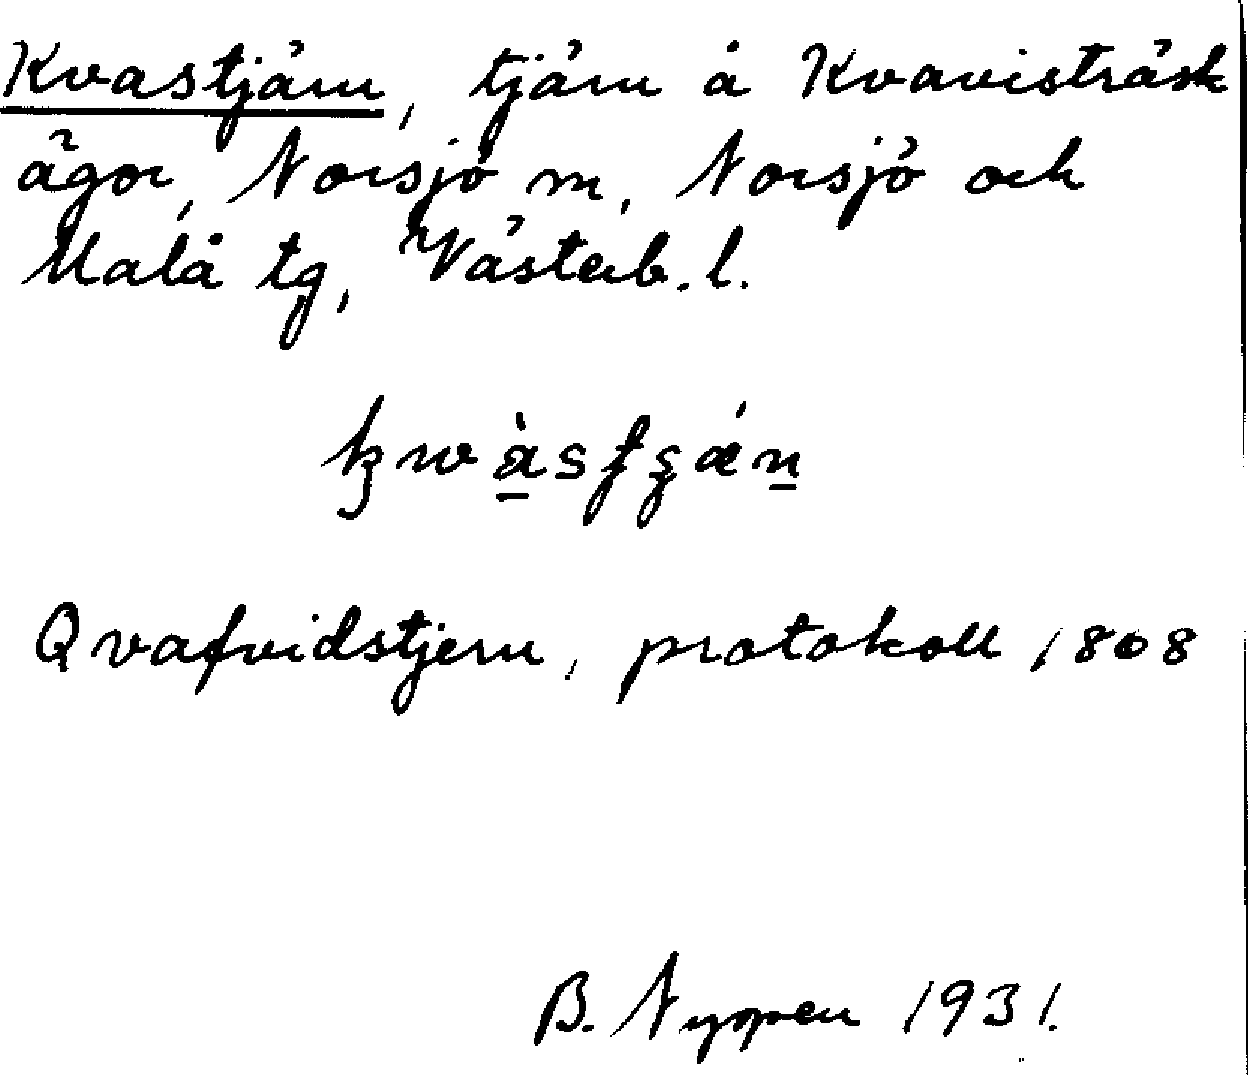 Kvastjärn, tjärn å Kvavisträsk
ägor, Norsjö m, Norsjö och
Malå tg, Västerb. l.
Qvafvidstjern, protokoll 1808
B. Nyman 1931.